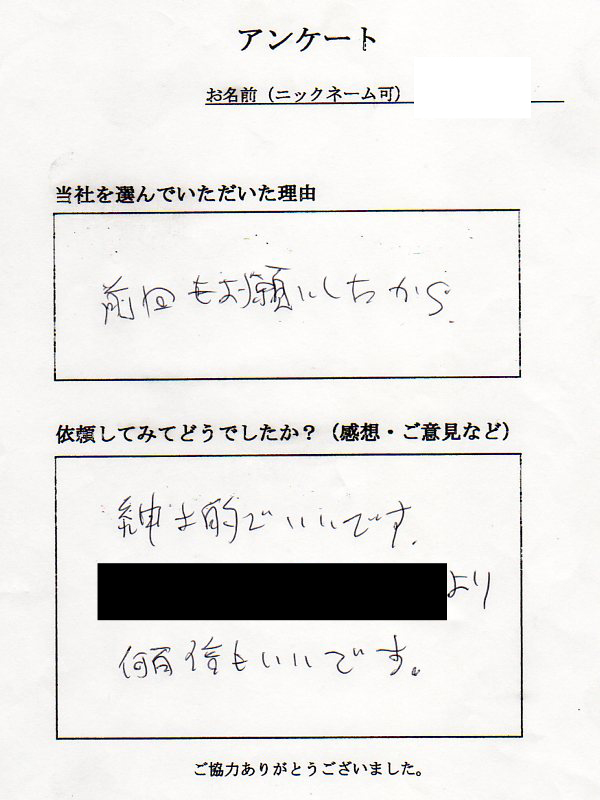 アンケート
お名前（ニックネーム可）
当社を選んでいただいた理由
前回もお願いしたから.
依頼してみてどうでしたか？（感想・ご意見など）
紳士的でいいです.
より
何百倍もいいです。
ご協力ありがとうございました。